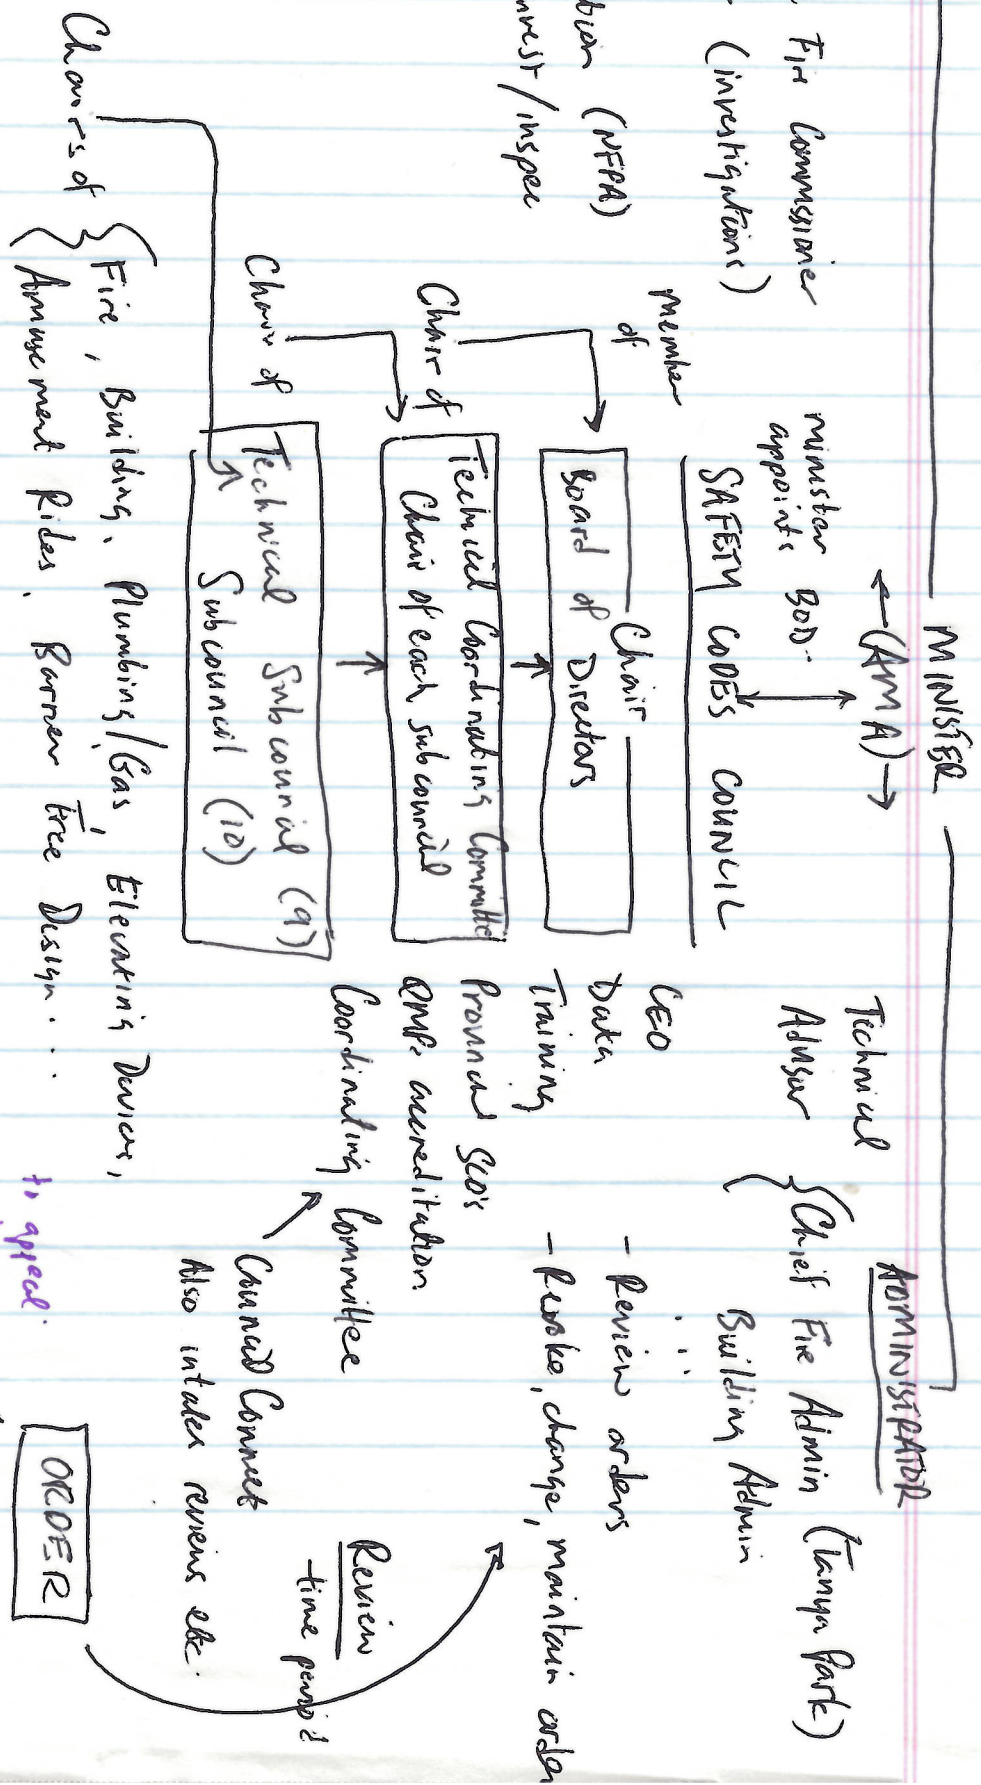 MINISTER
Fire Commssioner
(investigations)
(NFPA)
invest/inspec
← (AMA) →
minister
appoints BOD
SAFETY CODES COUNCIL
member
of
Chair
Board of Directors
Chair of
Technical Coordinating Committe
Chair of each subcouncil
Chair of
Technical Subcouncil (9)
Subcouncil (10)
Chairs of
{ Fire, Building, Plumbing/Gas, Elevating Devices,
{ Amusement Rides, Barrier Free Design...
ADMINISTRATOR
Technical
Advisor
{ Chief Fire Admin (Tanya Park)
Building Admin
CEO
Data
Training
Provincial SCO's
QMP: accreditation
Coordinating Committee
- Review orders
- Revoke, change, maintain order
Council Connect
Also intakes reviews etc.
Review
- time period
ORDER
to appeal